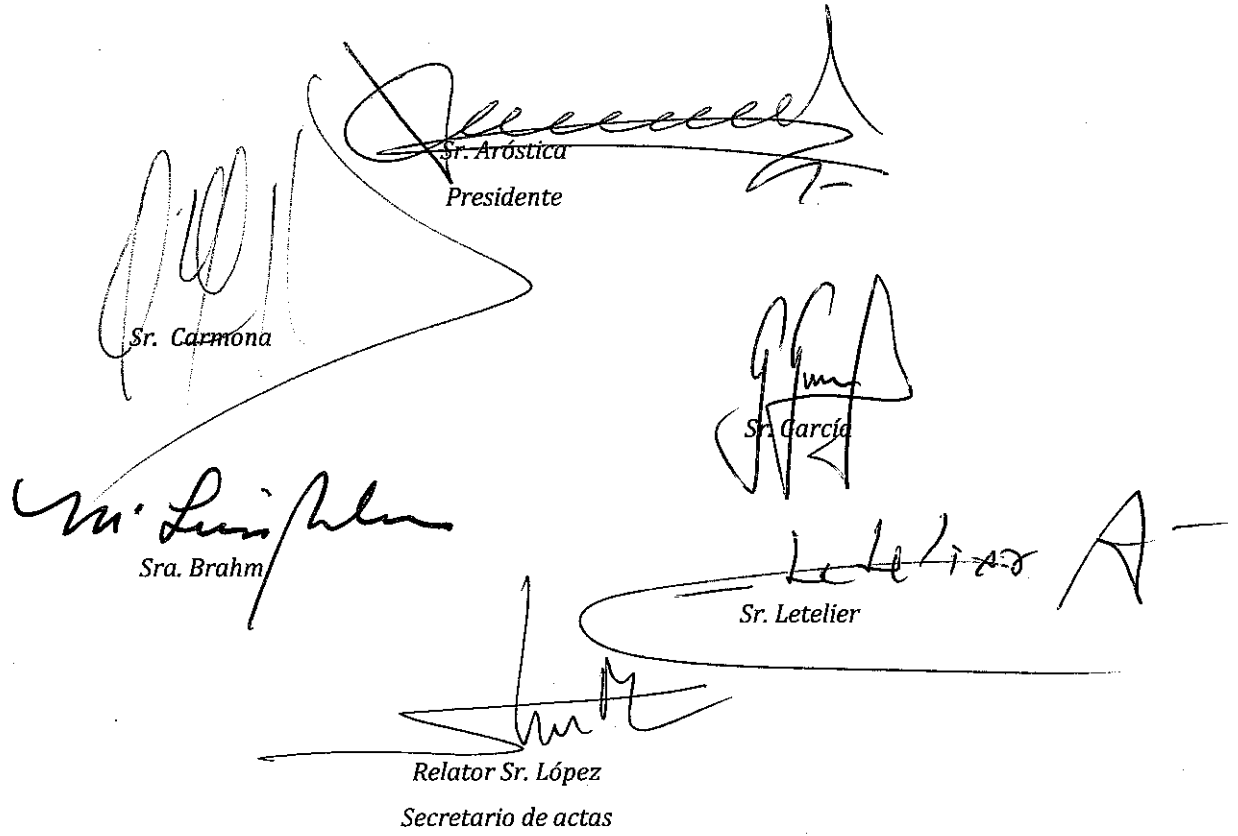 Sr. Aróstica
Presidente
Sr. Carmona
Sr. García
Sra. Brahm
Letelier A
Sr. Letelier
Relator Sr. López
Secretario de actas